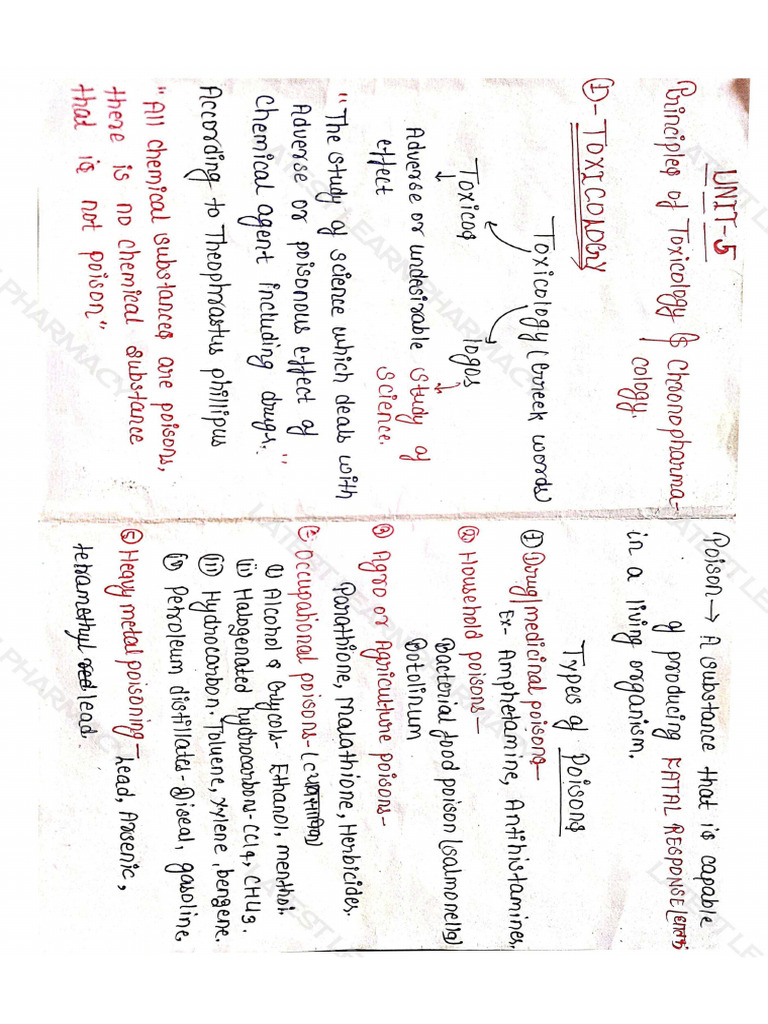 UNIT-5
Principles of Toxicology & Chronopharma-
cology.
① - TOXICOLOGY
Toxicology (Greek words
Toxicos logos
Adverse or undesirable study of
effect science.
"The study of science which deals with
Adverse or poisonous effect of
Chemical agent including drugs."
According to Theophrastus phillipus
"All chemical substances are poisons,
there is no chemical substance
that is not poison"
Poison → A substance that is capable
of producing FATAL RESPONSE
in a living organism.
Types of Poisons
① Drug/medicinal poisons-
Ex- Amphetamine, Antihistamines.
② Household poisons-
Bacterial food poison (salmonella)
Botolinum
③ Agro or Agriculture poisons-
Parathione, Malathione, Herbicides.
④ Occupational poisons-
(i) Alcohol & Glycols- Ethanol, menthol.
(ii) Halogenated hydrocarbons- CCl4, CHCl3.
(iii) Hydrocarbon- Toluene, xylene, bengene.
(iv) Petroleum distillates- Diseal, gasoline,
⑤ Heavy metal poisoning- Lead, Arsenic,
tetramethyl lead.
LATEST LEARN PHARMACY